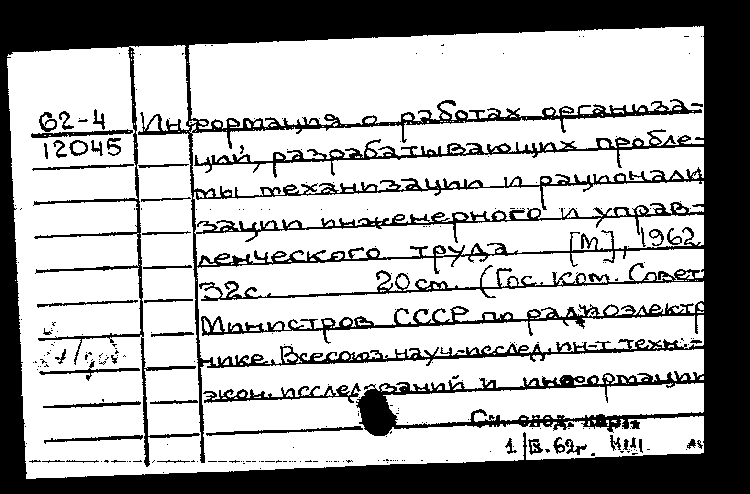 62-4 Информация о работах организа-
12045 ций, разрабатывающих пробле-
мы механизации и рационали
зации инженерного и управ-
ленческого труда. [М], 1962.
32с. 20см. (Гос. ком. Совет
Министров СССР по радиоэлектр
нике. Всесоюз. науч.-исслед. ин-т. техн.-
экон. исследований и информации
См. след. карт.
1/IX.62г.